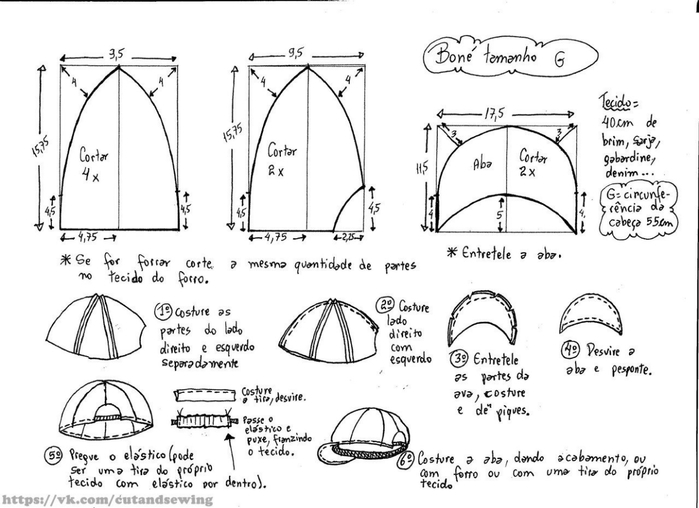 Boné tamanho G
9,5
4
4
15,75
Cortar
4x
4,5
4,5
4,75
9,5
4
4
15,75
Cortar
2x
4,5
4,5
4,75
2,25
17,5
3
3
11,5
Aba
Cortar
2x
4
5
4
Tecido=
40cm de
brim, sarja,
gabardine,
denim...
G=circunfe-
rência da
cabeça 55cm
* Se for forrar corte a mesma quantidade de partes
no tecido do forro.
* Entretele a aba.
1º Costure as
partes do lado
direito e esquerdo
separadamente
2º Costure
lado
direito
com
esquerdo
3º Entretele
as partes da
ava, costure
e dê piques.
4º Desvire a
aba e pesponte.
Costure
a tira, desvire.
Passe o
elástico e
puxe, franzindo
o tecido.
5º Pregue o elástico (pode
ser uma tira do próprio
tecido com elástico por dentro).
6º Costure a aba, dando acabamento, ou
com forro ou com uma tira do próprio
tecido
https://vk.com/cutandsewing